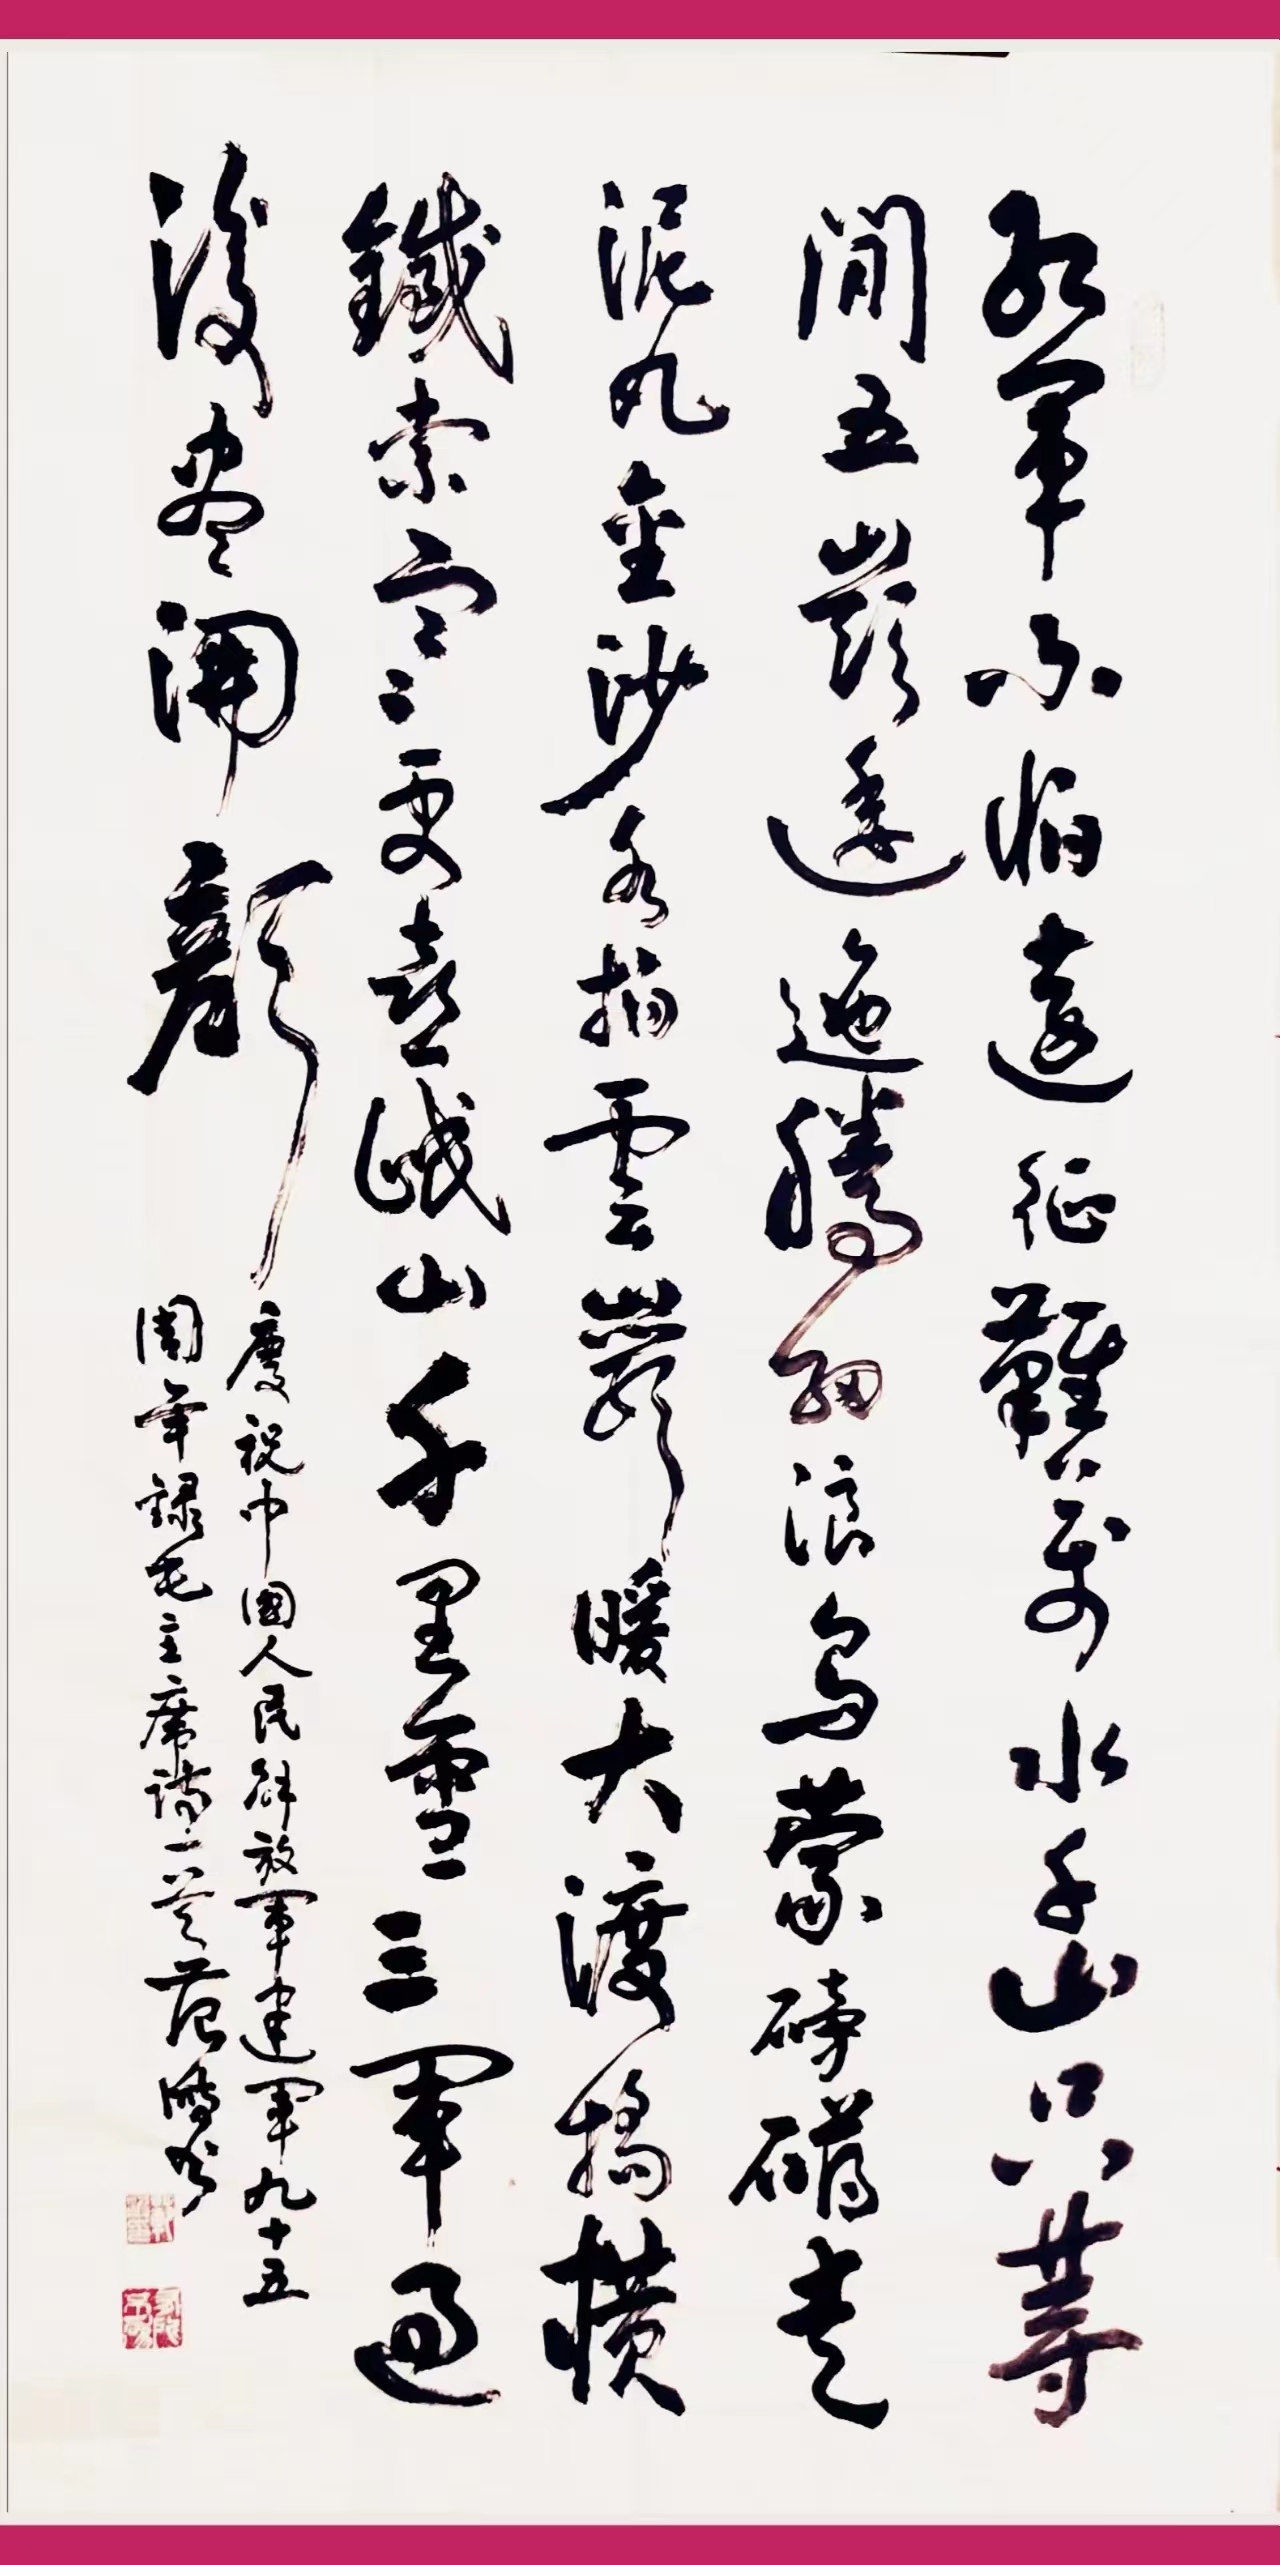 紅軍不怕遠征難萬水千山只等
閒五嶺逶迤騰細浪烏蒙磅礴走
泥丸金沙水拍雲巖暖大渡橋橫
鐵索寒更喜岷山千里雪三軍過
後盡開顏
慶祝中國人民解放軍建軍九十五
周年錄毛主席詩一首范